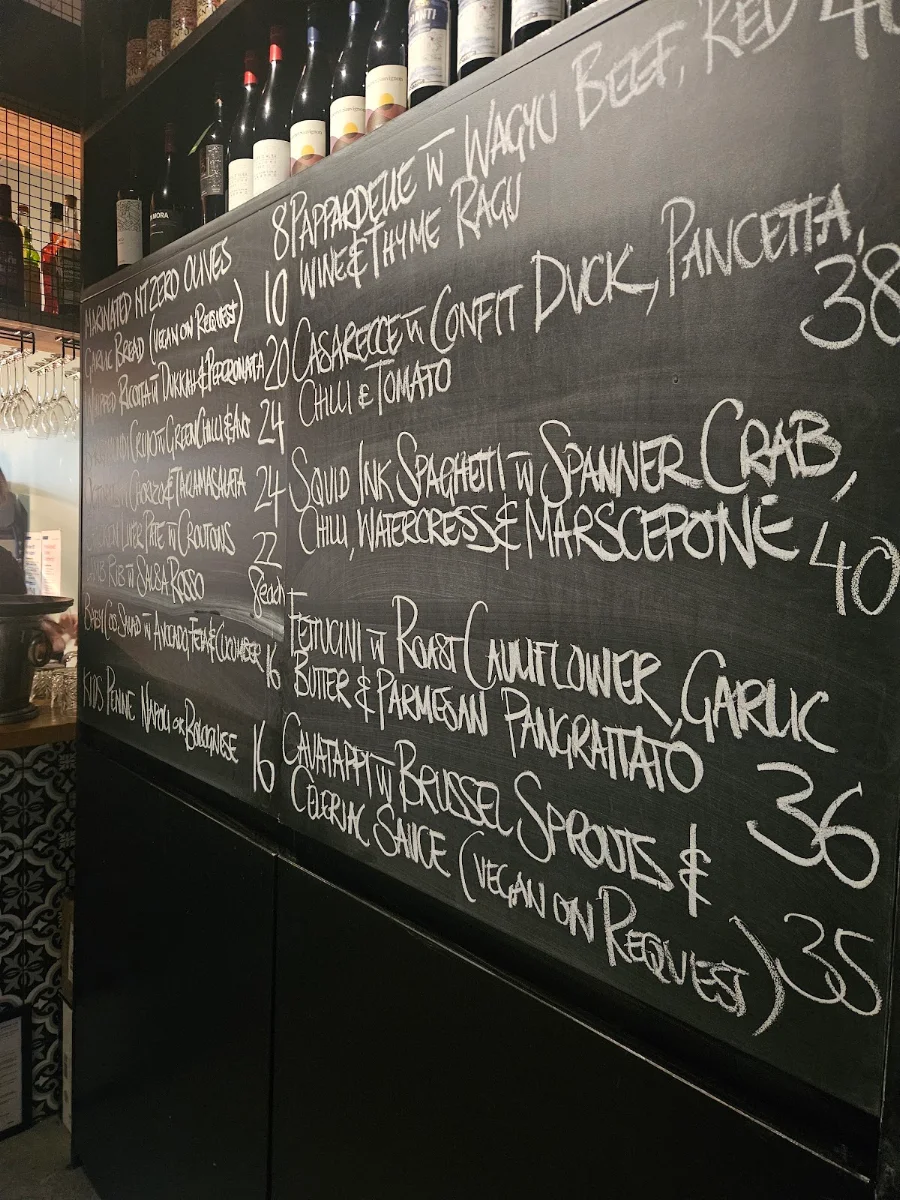 MARINATED MT ZERO OLIVES 8
GARLIC BREAD (VEGAN ON REQUEST) 10
WHIPPED RICOTTA W DUKKAH & PEPERONATA 20
CRUDO W GREEN CHILLI & 24
CHORIZO & TARAMASALATA 24
LIVER PATE W CROUTONS 22
LAMB RIB W SALSA ROSSO 8 each
BABY COS SALAD W AVOCADO, FETA & CUCUMBER 16
KIDS PENNE NAPOLI OR BOLOGNESE 16
PAPPARDELLE W WAGYU BEEF, RED 40
WINE & THYME RAGU
CASARECCE W CONFIT DUCK, PANCETTA,
CHILLI & TOMATO 38
SQUID INK SPAGHETTI W SPANNER CRAB,
CHILLI, WATERCRESS & MARSCEPONE 40
FETTUCINI W ROAST CAULIFLOWER, GARLIC
BUTTER & PARMESAN PANGRATTATO 36
CAVATAPPI W BRUSSEL SPROUTS &
CELERIAC SAUCE (VEGAN ON REQUEST) 35